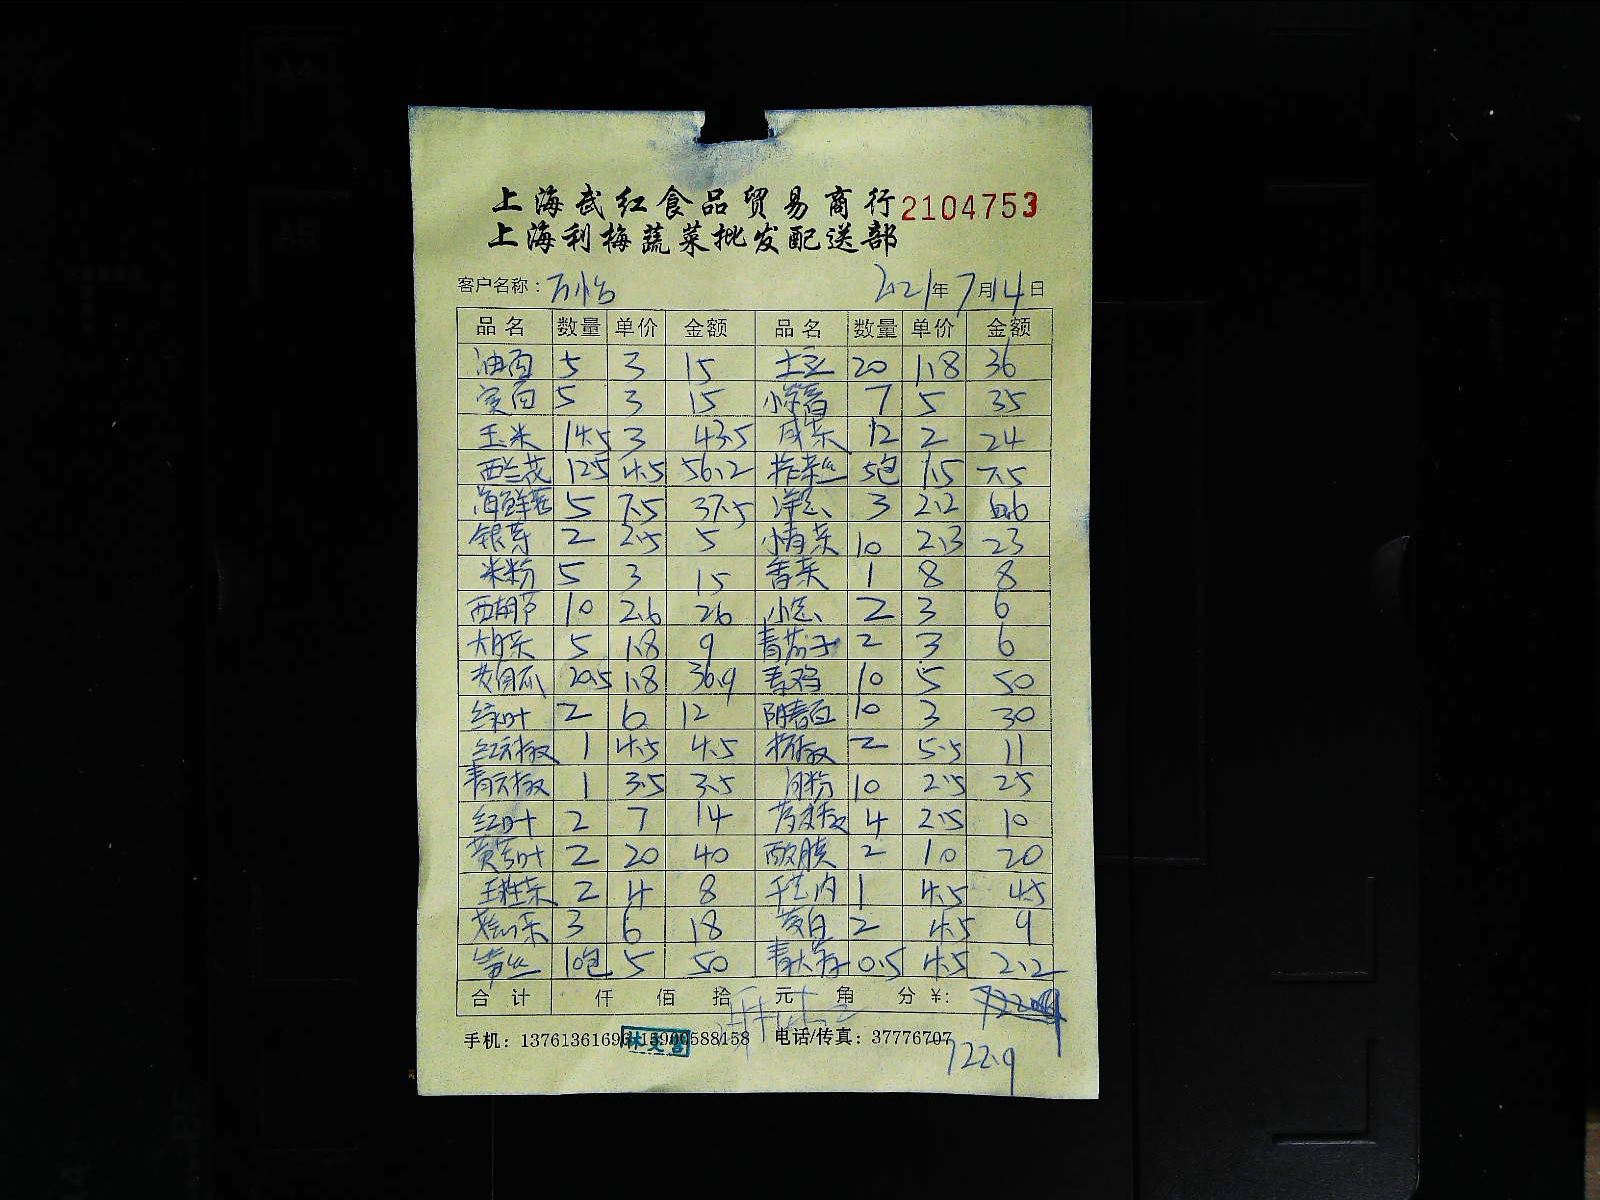 上海武红食品贸易商行 2104753
上海利梅蔬菜批发配送部
客户名称：万怡 2021年7月14日
品名 数量 单价 金额 品名 数量 单价 金额
油面 5 3 15 土豆 20 1.8 36
宽面 5 3 15 7 5 35
玉米 14.5 3 43.5 咸菜 12 2 24
西兰花 12.5 4.5 56.2 榨菜丝 5包 1.5 7.5
海鲜菇 5 7.5 37.5 洋葱 3 2.2 6.6
银芽 2 2.5 5 小青菜 10 2.3 23
米粉 5 3 15 香菜 1 8 8
西葫芦 10 2.6 26 小葱 2 3 6
大白菜 5 1.8 9 青茄子 2 3 6
黄瓜 20.5 1.8 36.9 素鸡 10 5 50
绿叶 2 6 12 10 3 30
红尖椒 1 4.5 4.5 杭椒 2 5.5 11
青尖椒 1 3.5 3.5 粉 10 2.5 25
红叶 2 7 14 4 2.5 10
黄芯叶 2 20 40 2 10 20
生菜 2 4 8 1 4.5 4.5
菜 3 6 18 茭白 2 4.5 9
笋丝 10包 5 50 青大蒜 0.5 4.5 2.2
合计 仟 佰 拾 元 角 分 ￥：
手机：13761361696 15900588158 电话/传真：37776707
722.9